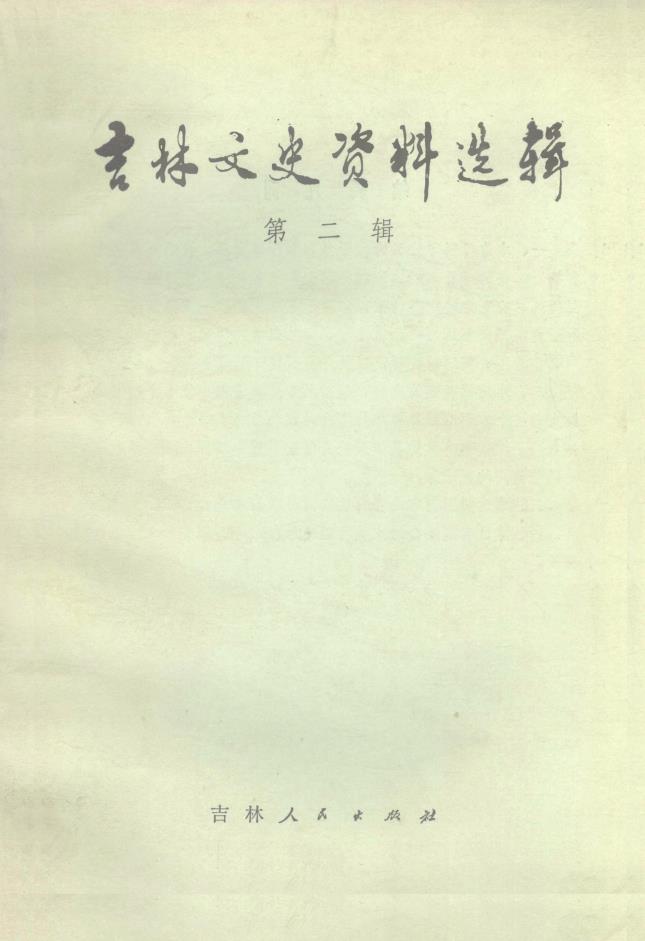 吉林文史资料选辑
第二辑
吉林人民出版社